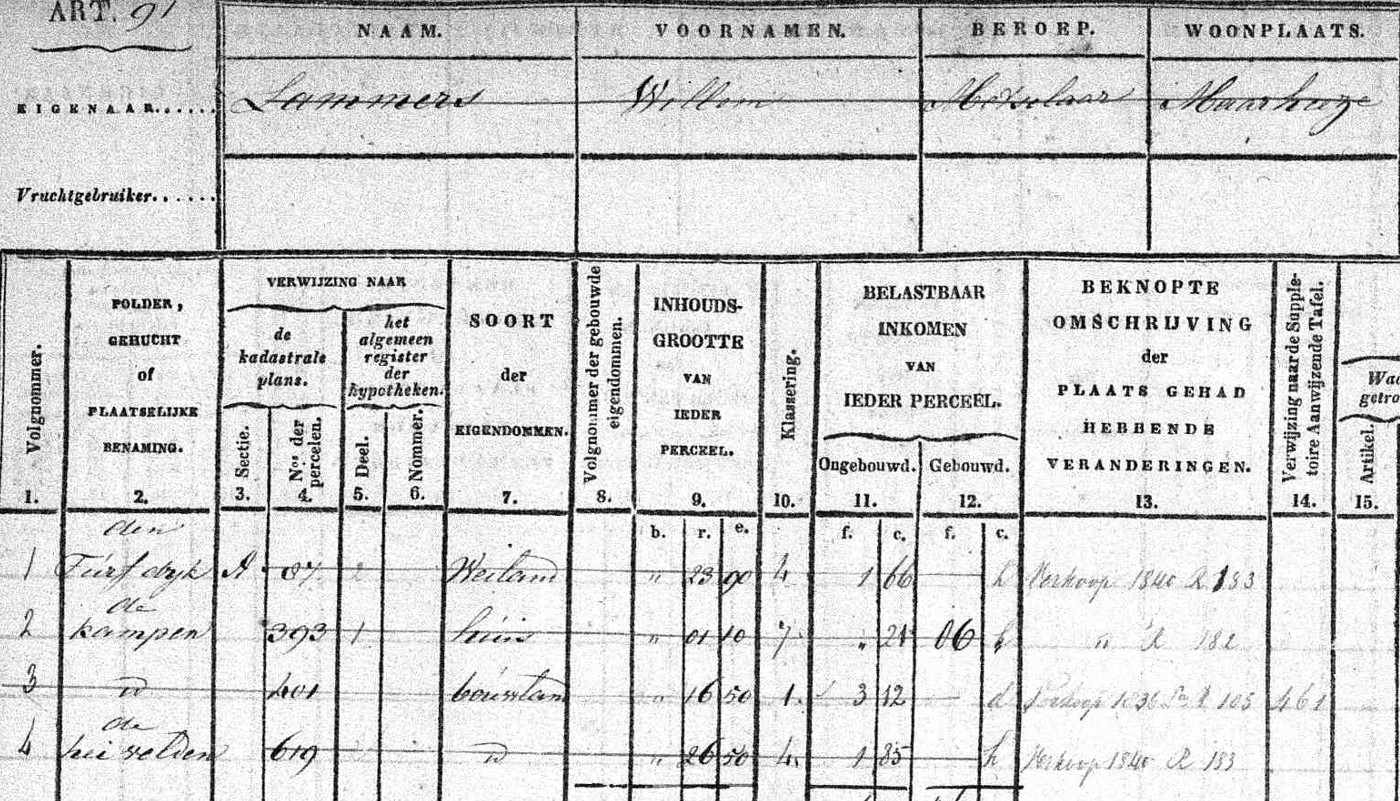 ART. 91
NAAM. VOORNAMEN. BEROEP. WOONPLAATS.
EIGENAAR...... Lammers Willem Metselaar Maarheeze
Vruchtgebruiker......
Volgnommer. 1.
POLDER, GEHUCHT of PLAATSELIJKE BENAMING. 2.
VERWIJZING NAAR
de kadastrale plans.
Sectie. 3.
Nos der percelen. 4.
het algemeen register der hypotheken.
Deel. 5.
Nommer. 6.
SOORT der EIGENDOMMEN. 7.
Volgnommer der gebouwde eigendommen. 8.
INHOUDS-GROOTTE VAN IEDER PERCEEL. 9.
Klassering. 10.
BELASTBAAR INKOMEN VAN IEDER PERCEEL.
Ongebouwd. 11.
Gebouwd. 12.
BEKNOPTE OMSCHRIJVING der PLAATS GEHAD HEBBENDE VERANDERINGEN. 13.
Verwijzing naar de Supple-toire Aanwijzende Tafel. 14.
Artikel. 15.
b. r. e. f. c. f. c.
den
1 Turfdyk A 87 Weiland " 23 90 4 1 66 h Verkoop 1840 R 183
de
2 kampen 393 1 huis " 01 10 7 " 21 06 h " R 182
3 " 401 bouwland " 16 50 1 3 12 d 1836 R 105 461
de
4 heivelden 619 " " 26 50 4 1 85 h Verkoop 1840 R 183